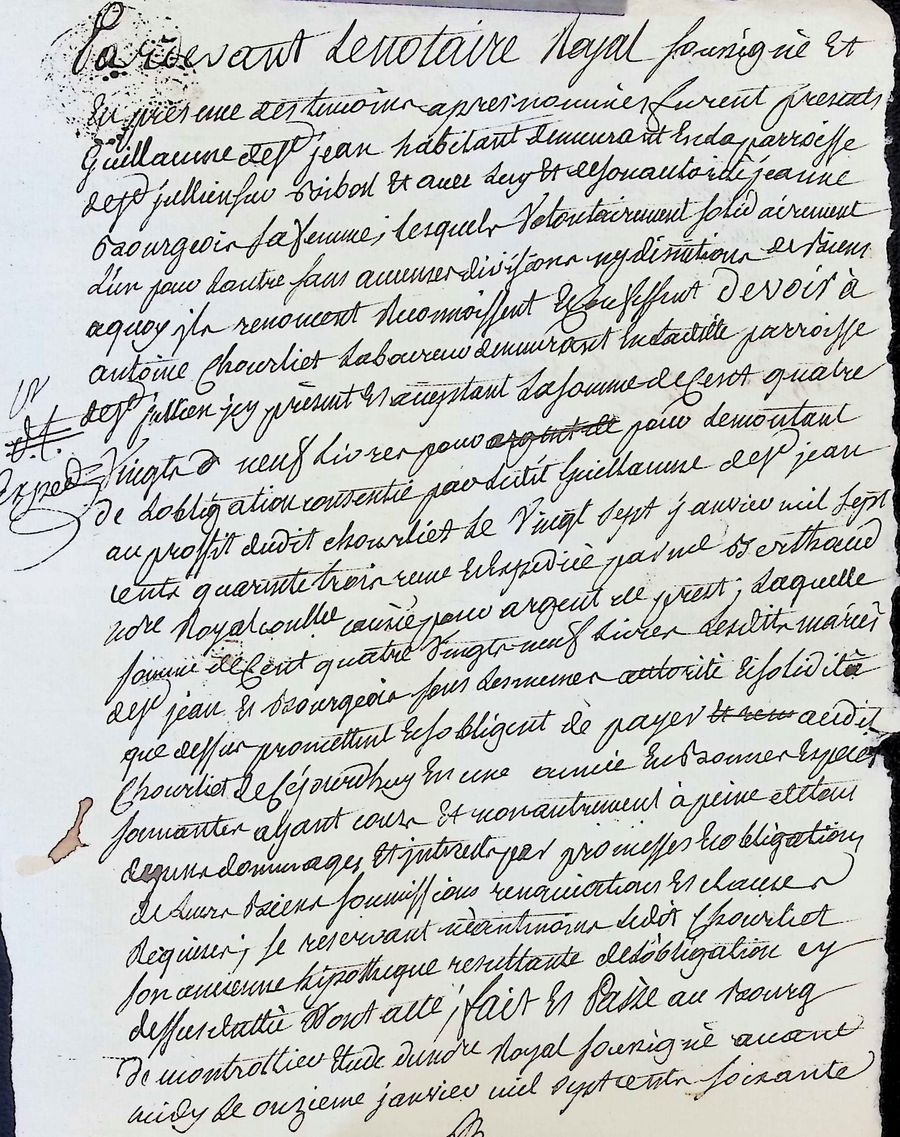 Pardevant Le notaire Royal soussigné Et
En presence des temoins apres nommés furent presents
Guillaume de st jean habitant demeurant En La parroisse
de st jullien sur Bibost Et avec Luy Et de son autorité jeanne
Bourgeois sa femme, lesquels Volontairement solidairement
L'un pour Lautre sans divisions ny de Biens
aquoy ils renoncent Reconnoissent Et Confessent devoir à
antoine Chourliet Laboureur demeurant En Ladite parroisse
de st jullien jcy present Et acceptant La somme de Cent quatre
Vingts neuf Livres pour argent de pour Le montant
De Lobligation consentie par Ledit Guillaume de st jean
au proffit dudit chourliet Le Vingt sept janvier mil sept
cents quarante trois recue Et Expediée par me Berthaud
nore Royal causée pour argent de prest; Laquelle
somme de Cent quatre Vingts neuf Livres Lesdits mariés
de st jean Et Bourgeois sous Les memes autorité Et solidité
que dessus promettent Et sobligent de payer audit
Chourliet de Cejourdhuy En une année En Bonnes Especes
sonnantes ayant cours Et non autrement à peine de tous
depens dommages Et interests par promesses Et obligations
de Leurs Biens soumissions renonciations Et clauses
Requises; se reservant néantmoins Ledit Chourliet
son ancienne hipotheque resultante de Lobligation cy
dessus dattée Dont acte; fait Et Passé au Bourg
de montrottier Etude dud nore Royal soussigné avant
midy Le onzieme janvier mil sept cents soixante
Exped